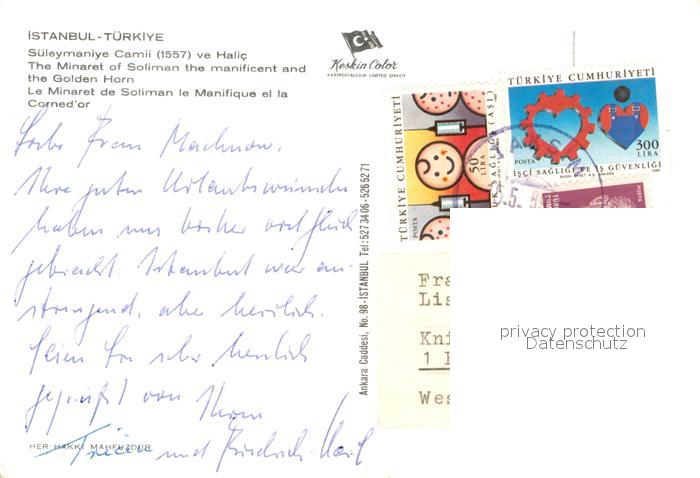 İSTANBUL-TÜRKİYE
Süleymaniye Camii (1557) ve Haliç
The Minaret of Soliman the manificent and
the Golden Horn
Le Minaret de Soliman le Manifique el la
Corned'or
Keskin Color
KARTPOSTALCILIK LIMITED ŞİRKETİ
Liebe Frau
Ihre guten Urlaubswünsche
haben uns bisher viel Glück
gebracht. Istanbul war an-
strengend, aber herrlich.
Seien Sie sehr herzlich
gegrüßt von Ihren
und Friedrich-Karl
HER HAKKI MAHFUZDUR
Ankara Caddesi, No. 98-İSTANBUL Tel: 5273406-5265271
TÜRKİYE CUMHURİYETİ
50
LİRA
SAĞLIĞI (AŞI)
TÜRKİYE CUMHURİYETİ
300
LİRA
POSTA
İŞÇİ SAĞLIĞI VE İŞ GÜVENLİĞİ
POSTA
Fra
Lis
Kni
1
Wes
privacy protection
Datenschutz